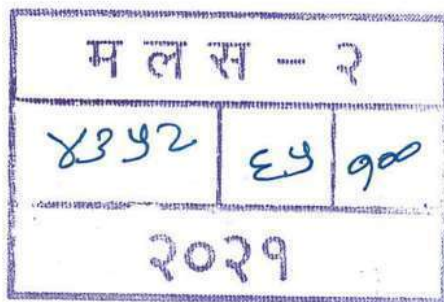 मलस - २
४३५२ ६५ १००
२०२१